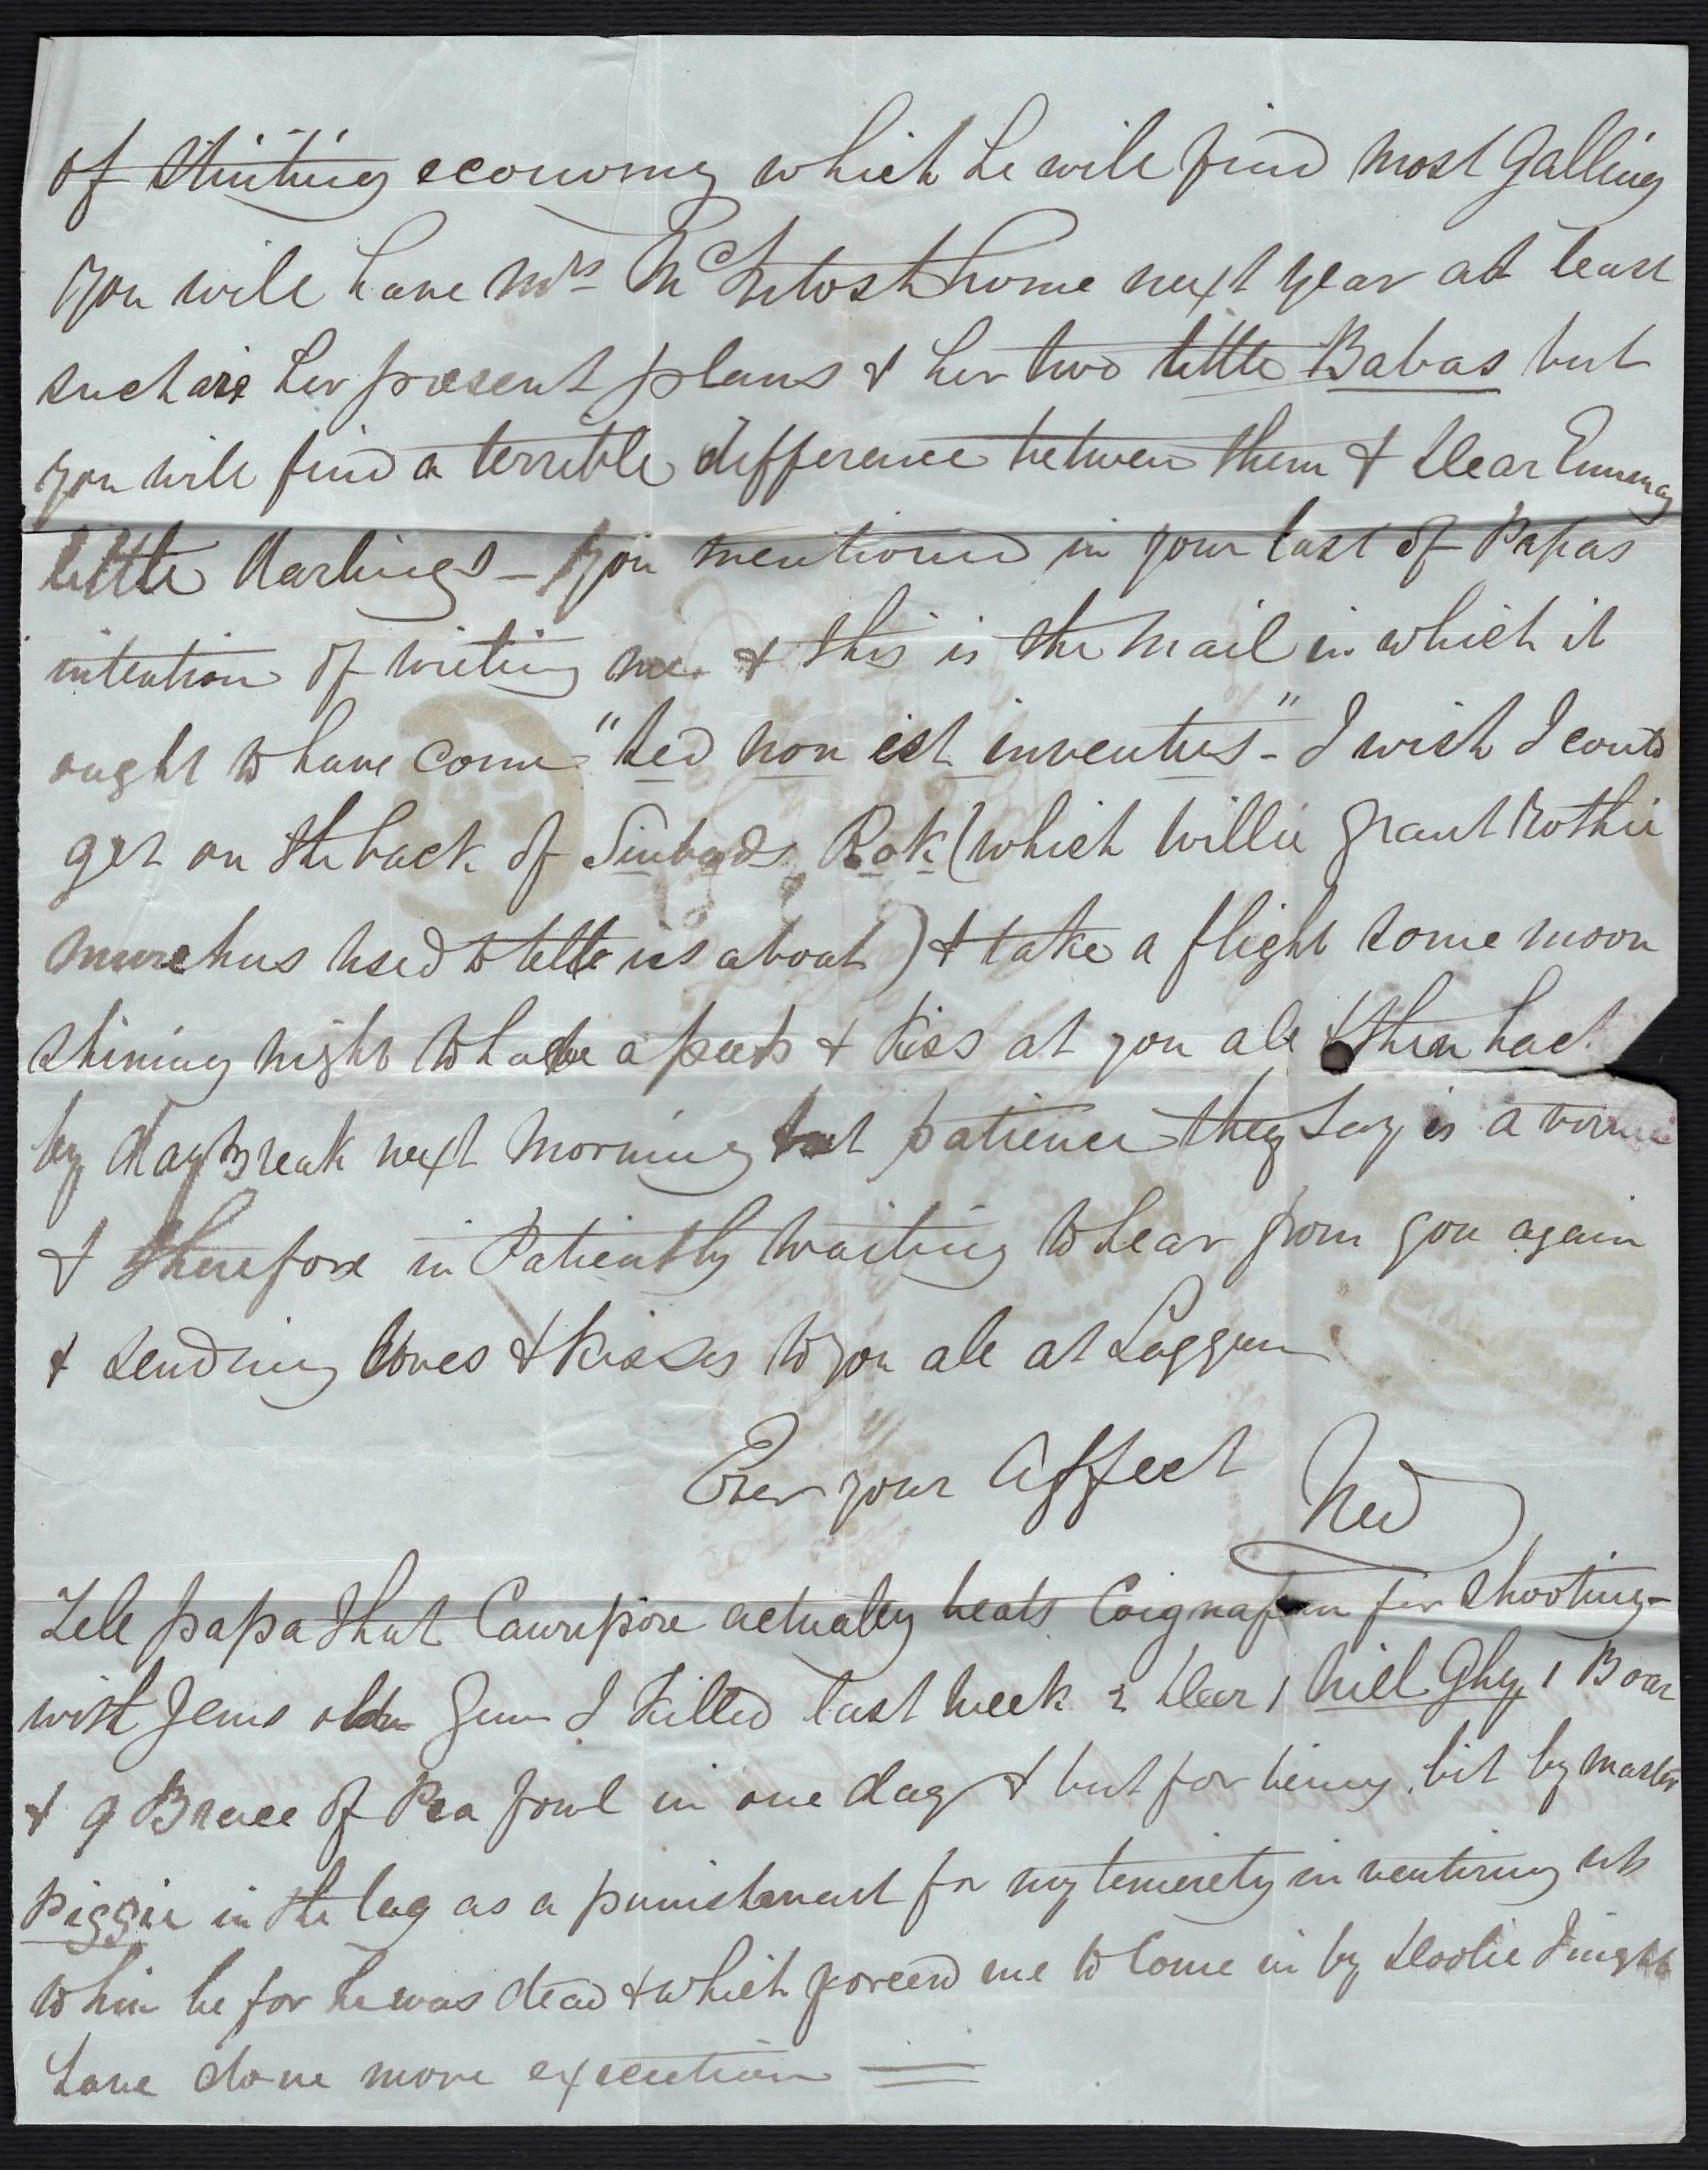 of stinting economy which he will find most galling
you will have Mrs McIntosh home next year at least
such are her present plans & her two little Babas but
you will find a terrible difference between them & dear Emmy
little darlings – you mentioned in your last of Papas
intention of writing me & this is the mail in which it
ought to have come "sed non est inventus" - I wish I could
get on the back of Sinbads Rok (which Willie Grant Rothie
murchus used to tell us about) & take a flight some moon
shining night to have a peep & kiss at you all & then back
by day Break next morning but patience they say is a virtue
& therefore in Patiently waiting to hear from you again
& sending loves & kisses to you all at Laggan
Ever your Affect Ned
Tell papa that Cawnpore actually beats for shooting -
with Jems old Gun I killed last week 2 deer 1 Niel Ghy 1 Boar
& 9 Brace of Pea fowl in one day & but for being bit by master
Piggie in the leg as a punishment for my temerety in venturing up
to him be for he was dead & which forced me to come in by doolie I might
have done more execution